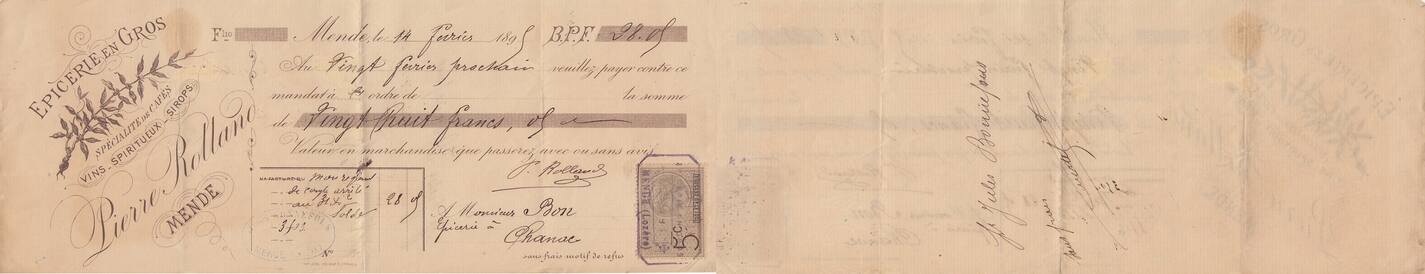 EPICERIE EN GROS
SPÉCIALITÉ DE CAFÉS
VINS, SPIRITUEUX, SIROPS
Pierre Rolland
MENDE
Fio Mende, le 14 février 1895 B.P.F. 28.05
Au Vingt février prochain veuillez payer contre ce
mandat à M/ ordre de la somme
de Vingt huit francs, 05
Valeur en marchandise que passerez avec ou sans avis
P. Rolland
mon règlement
de compte arrêté
au
Solde
28 05
A Monsieur Bon
épicerie à
Chanac
sans frais motif de refus
MENDE (Lozère)
5
Jules
sans frais